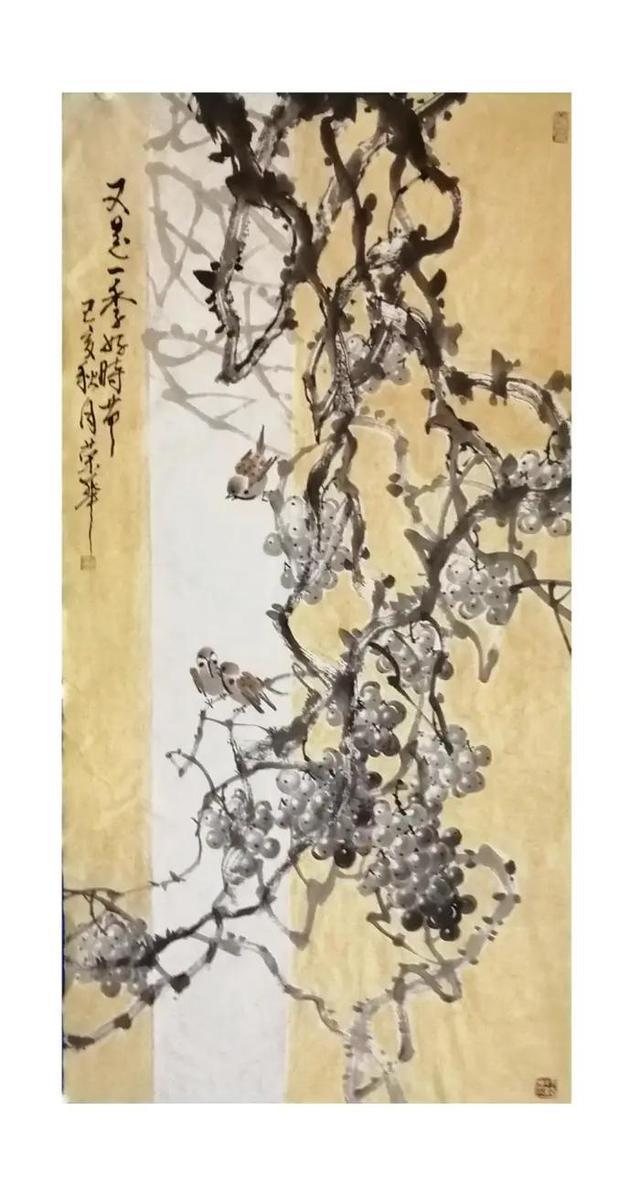 又是一季好时节
己亥秋月荣华